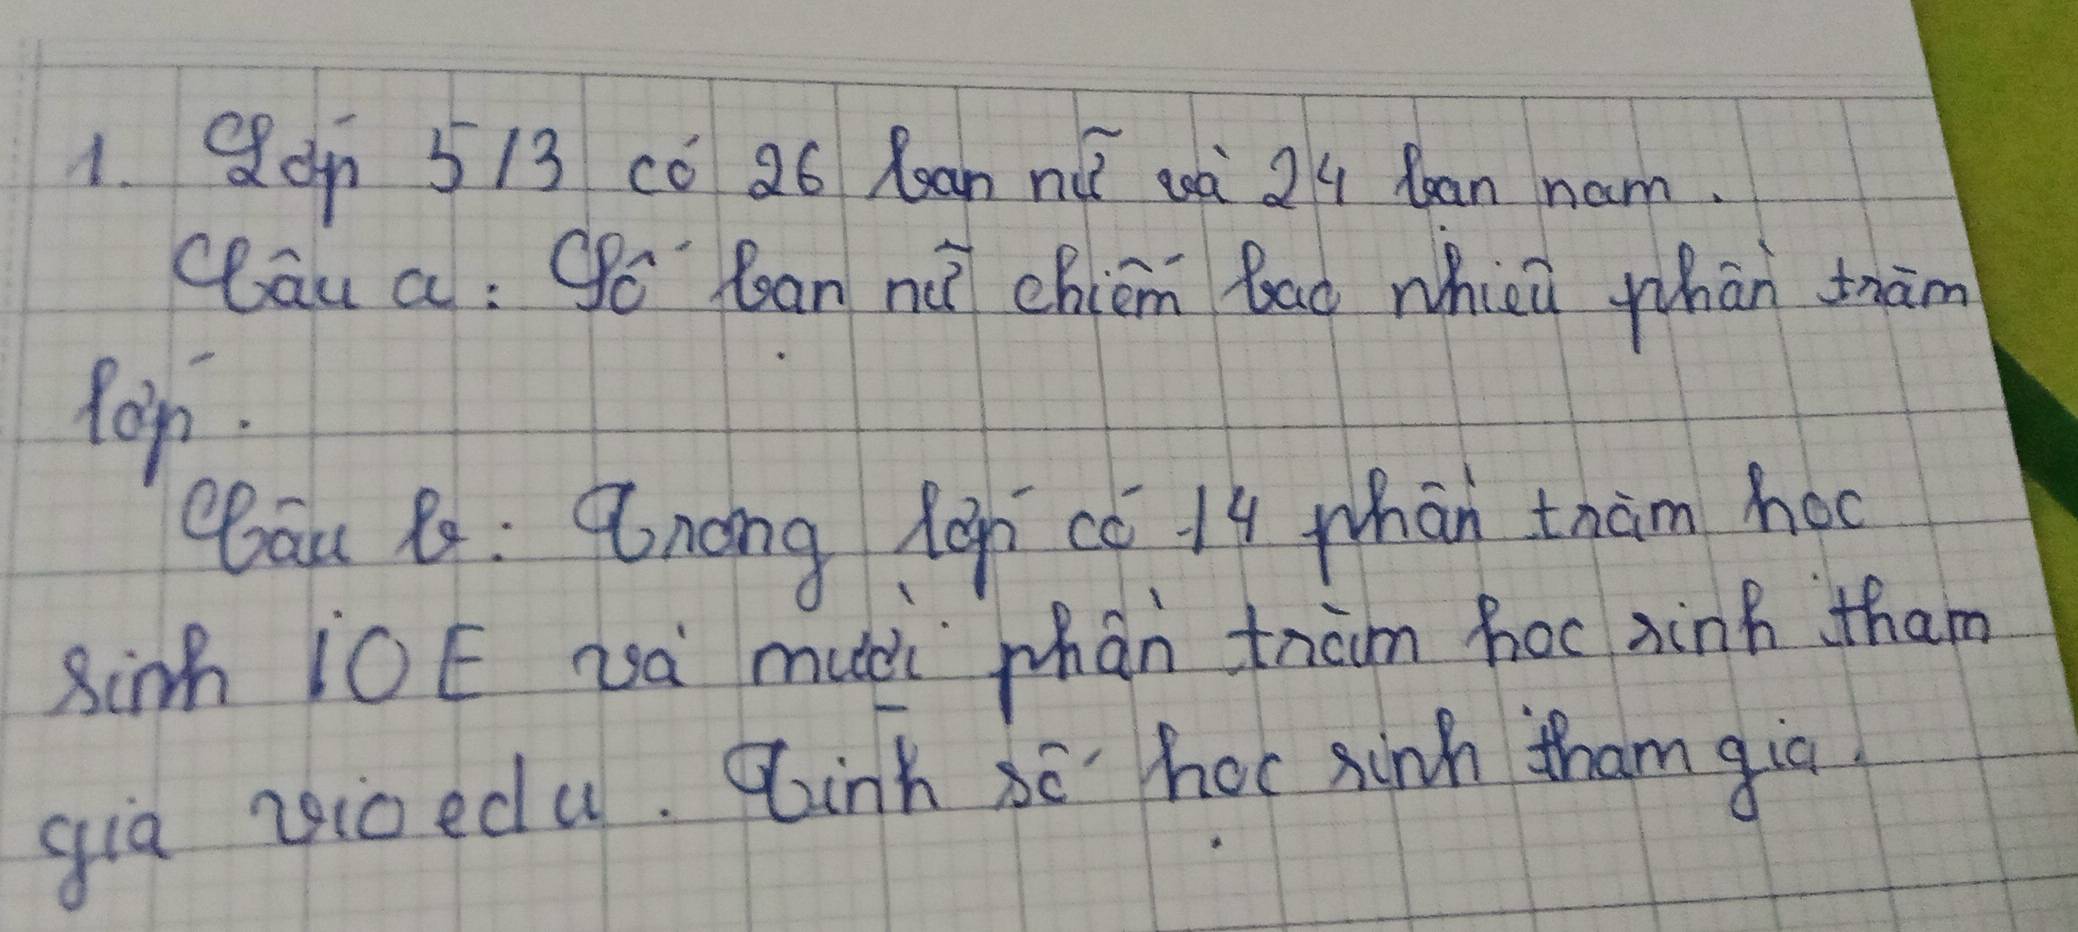 1. Lớp 5/3 có 26 bạn nữ và 24 bạn nam.
Câu a: Số bạn nữ chiếm bao nhiêu phần trăm
lớp.
Câu b: Trong lớp có 14 phần trăm học
sinh iOE và mười phần trăm học sinh tham
gia vioedu. Tính số học sinh tham gia.